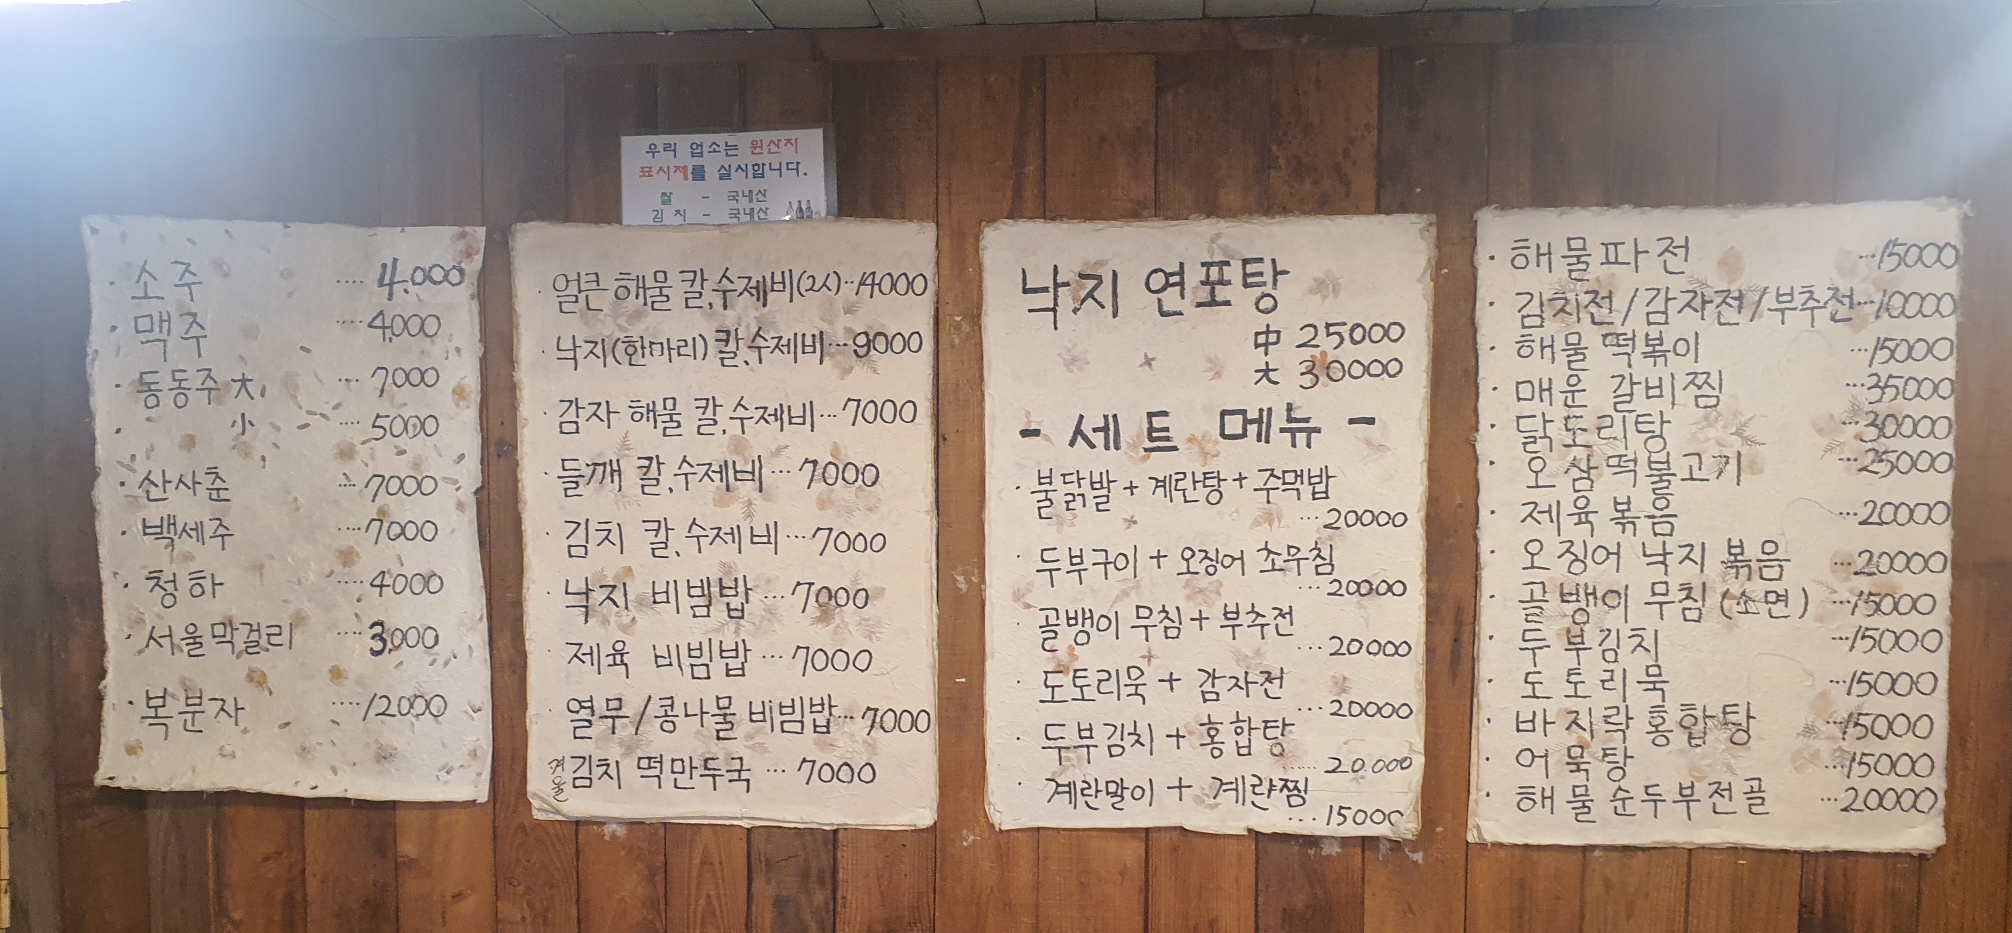 우리 업소는 원산지
표시제를 실시합니다.
쌀 - 국내산
김치 - 국내산
· 소주 ···· 4.000
· 맥주 ···· 4000
· 동동주 大 ··· 7000
· 小 ···· 5000
· 산사춘 ···· 7000
· 백세주 ···· 7000
· 청하 ···· 4000
· 서울막걸리 ···· 3.000
· 복분자 ···· 12000
· 얼큰 해물 칼,수제비(2人)··14000
· 낙지(한마리) 칼,수제비···9000
· 감자 해물 칼,수제비···7000
· 들깨 칼,수제비···7000
· 김치 칼,수제비···7000
· 낙지 비빔밥···7000
· 제육 비빔밥···7000
· 열무/콩나물 비빔밥···7000
겨울 김치 떡만두국 ··· 7000
낙지 연포탕
中 25000
大 30000
- 세트 메뉴 -
· 불닭발 + 계란탕 + 주먹밥
···20000
· 두부구이 + 오징어 초무침
···20000
· 골뱅이 무침 + 부추전
···20000
· 도토리묵 + 감자전
···20000
· 두부김치 + 홍합탕
······20.000
· 계란말이 + 계란찜
···15000
· 해물파전 ···15000
· 김치전/감자전/부추전···10000
· 해물 떡볶이 ···15000
· 매운 갈비찜 ···35000
· 닭도리탕 ···30000
· 오삼떡불고기 ···25000
· 제육볶음 ···20000
· 오징어 낙지 볶음 ···20000
· 골뱅이 무침(소면) ···15000
· 두부김치 ···15000
· 도토리묵 ···15000
· 바지락홍합탕 ···15000
· 어묵탕 ···15000
· 해물순두부전골 ···20000